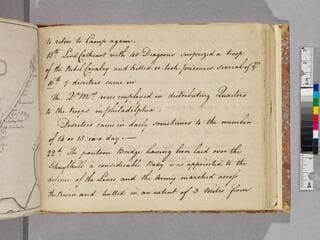 to return to Camp again.
15th Lord Cathcart with 40 Dragoons surprized a troop
of the Rebel Cavalry and killed or took prisoners several of ym
16th 7 deserters came in
The Qr Mrs were employed in distributing Quarters
to the troops in Philadelphia.
Deserters came in daily sometimes to the number
of 14 or 15 in a day.—
22th The pontoon Bridge having been laid over the
Schuylkill a considerable Body was appointed to the
defence of the Lines and the Army marched across
the River and hutted in an extent of 3 Miles from